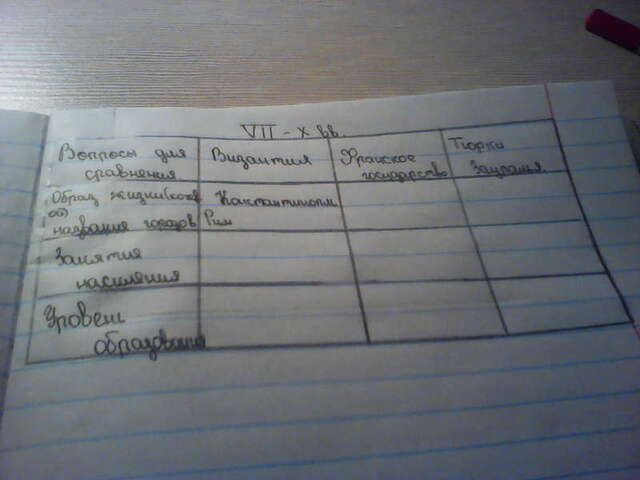 VII - X вв.
Вопросы для
сравнения
Византия
Франкское
государство
Тюрки
Образ жизни
названия городов
Константинопль
Рим
Занятия
населения
Уровень
образования